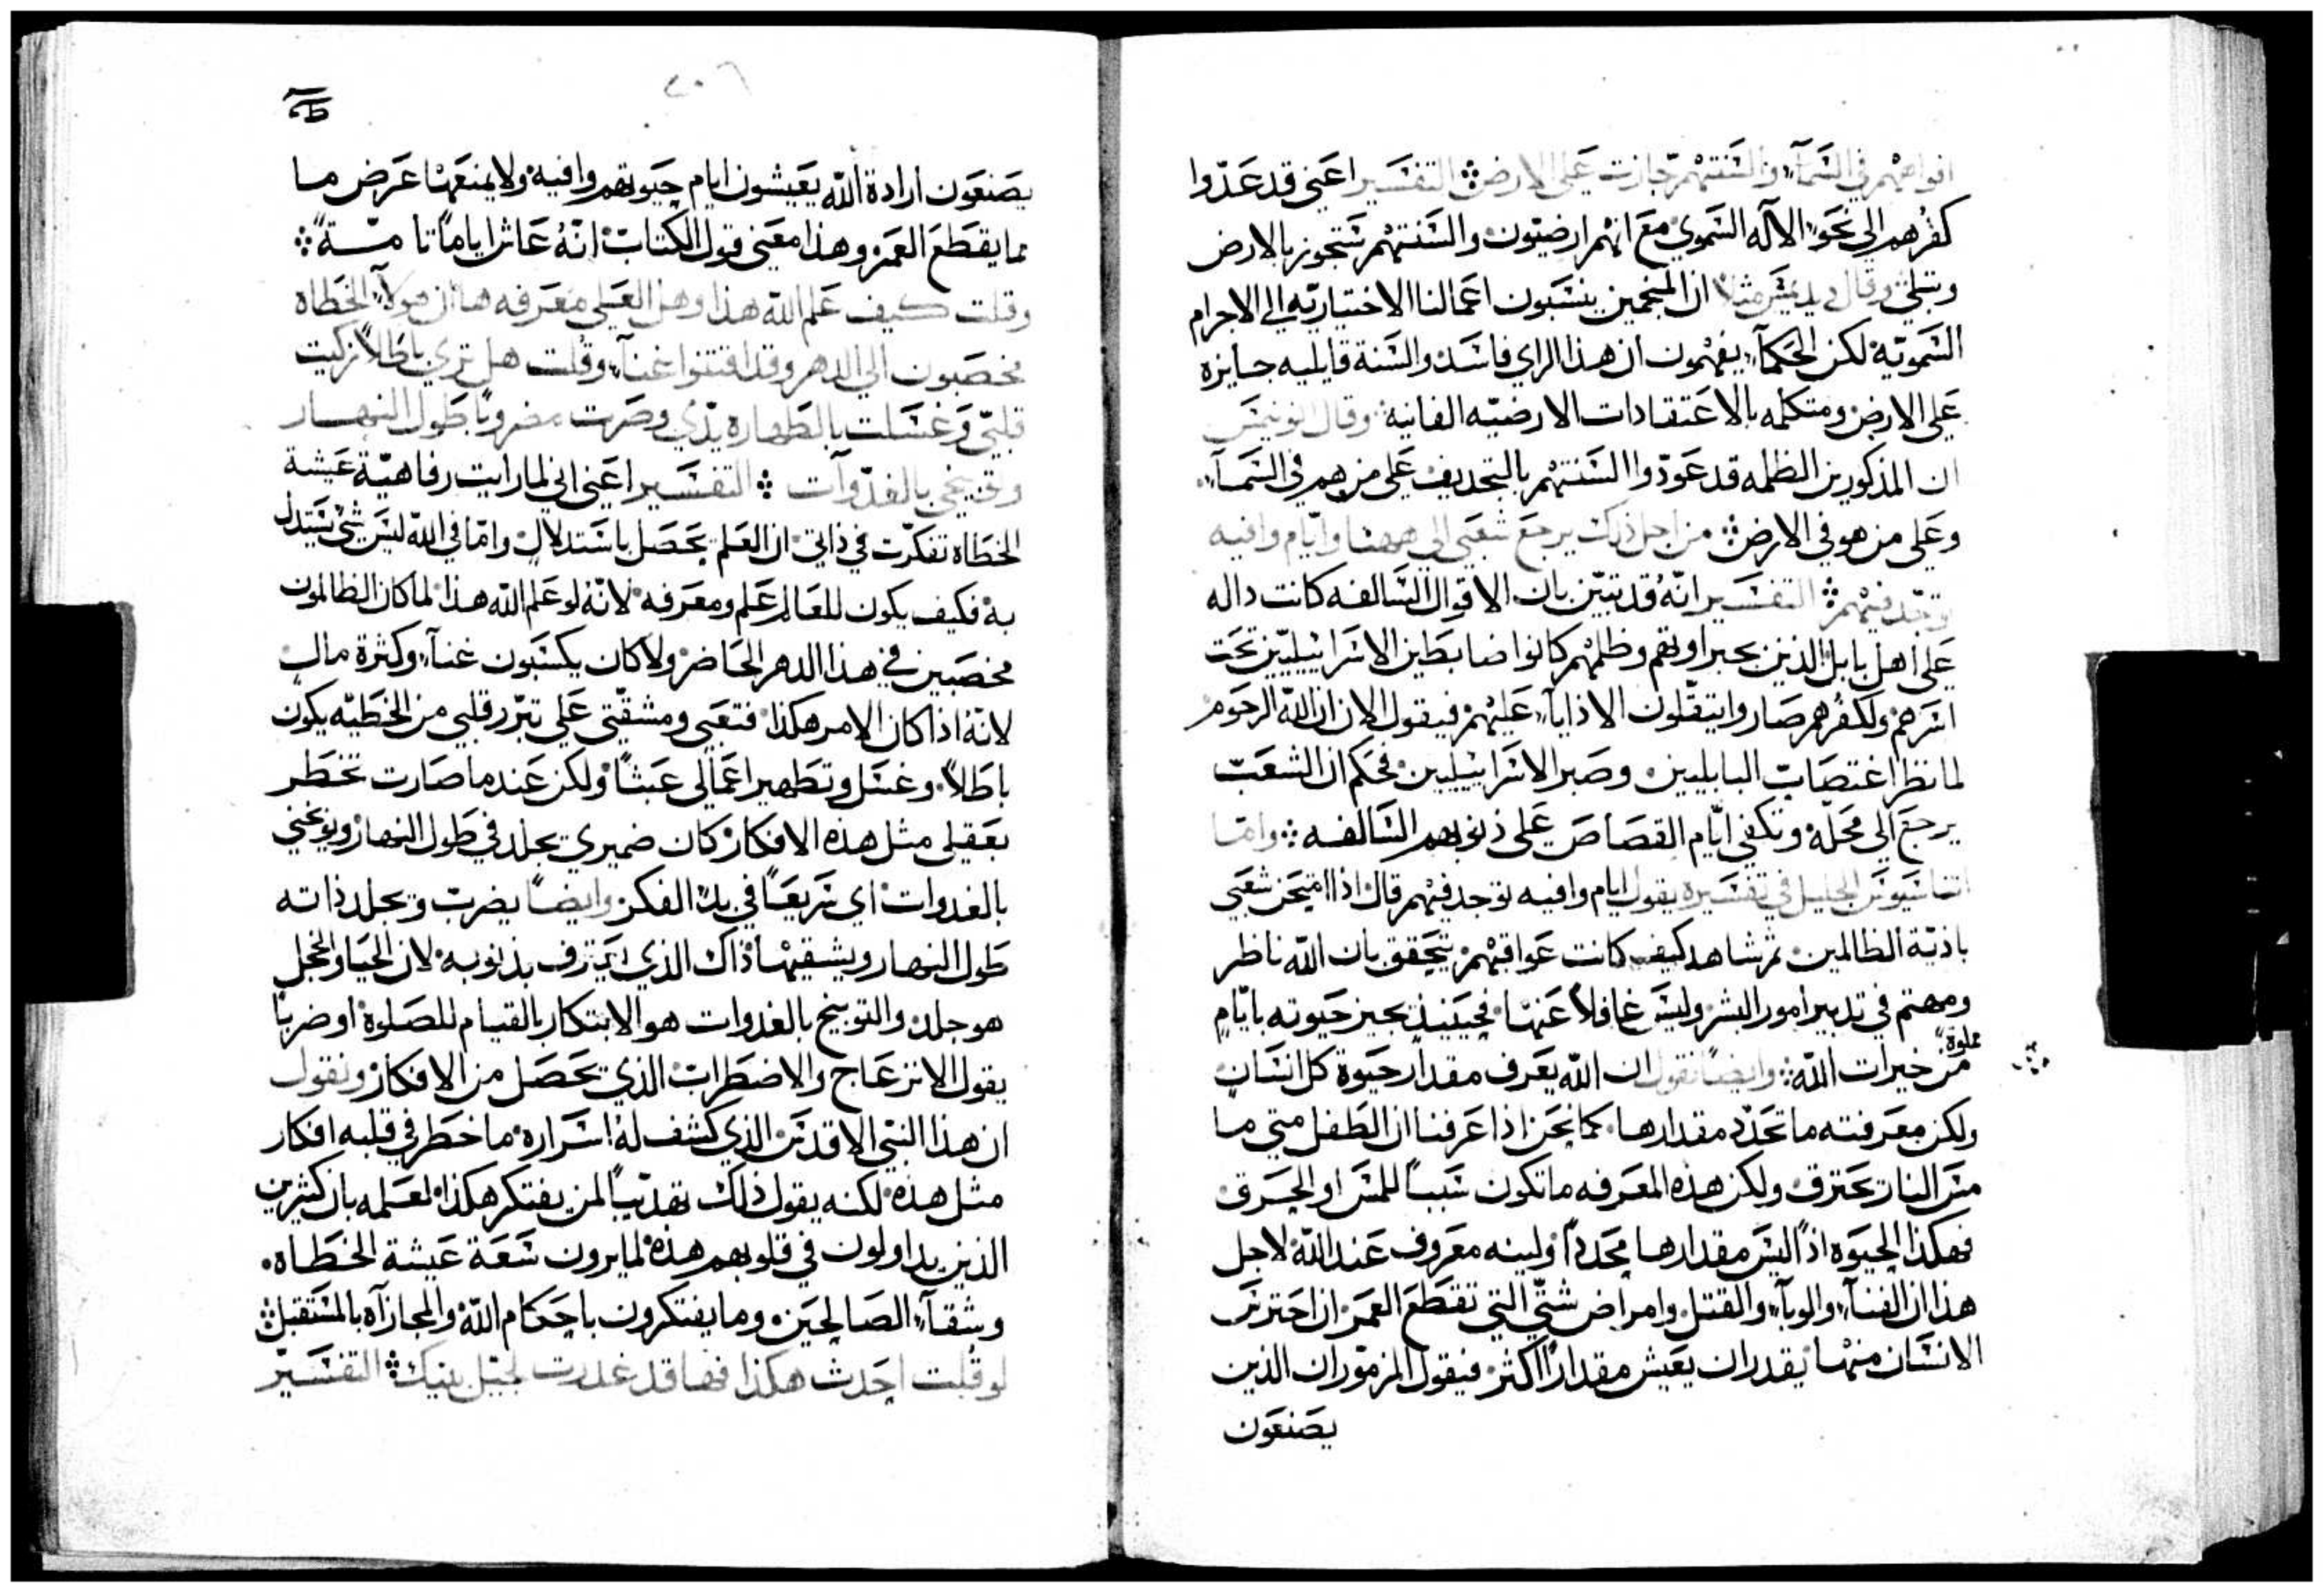 افواههم في السمآء والسنتهم جازت علي الارض ۞ التفسير اعني قد عدّوا
كفرهم الي نحو الآله السموي مع انهم ارضيون والسنتهم ستجوز بالارض
وتبلي وقال ديديمس مثلاً ان المنجمين ينسبون اعمالنا الاختياريه الي الاجرام
السمويّة لكن الحكمآء يفهمون ان هذا الراي فاسد والسنة قايليه جايزه
علي الارض ومتكلمه بالاعتقادات الارضيّه الفانيه وقال
ان المذكورين الظلمه قد عوّدوا السنتهم بالتجديف علي من هم في السمآء
وعلي من هو في الارض ۞ من اجل ذلك يرجع شعبي الي ههنا وايّام وافيه
توجد فيهم ۞ التفسير انّه قد تبيّن بان الاقوال السالفه كانت داله
علي اهل بابل الذين بجبراوتهم وظلمهم كانوا ضابطين الاسراييليّين تحت
اسرهم ولكفرهم صاروا يتثقّلون الاذايآء عليهم فيقول الان ان الله الرحوم
لما نظر اغتصاب البابليين وصبر الاسراييليين فحكم ان الشعب
يرجع الي محلّه وتكفي ايّام القصاص علي ذنوبهم السالفه ۞ وامّا
اثناسيوس الجليل في تفسيره يقول ايام وافيه توجد فيهم قال اذا امتحن شعبي
باذيّة الظالمين ثم شاهد كيف كانت عواقبهم يتحقق بان الله ناظر
ومهتم في تدبير امور البشر وليس غافلاً عنها فحينيذ يجيز حيوته بايّام
مملوة
من خيرات الله ۞ وايضاً نقول ان الله يعرف مقدار حيوة كل انسان
ولكن معرفته ما تحدّد مقدارها كما نحن اذا عرفنا ان الطفل متي ما
مس النار يحترق ولكن هذه المعرفه ما تكون سبباً للمس او الحرق
فهكذا الحيوه اذاً ليس مقدارها محدداً ولينه معروف عند الله لاجل
هذا ان الفنآء والوبآء والقتل وامراض شتّي التي تقطع العمر ان احترس
الانسان منها يقدر ان يعيش مقداراً اكثر فيقول المزمور ان الذين
يصنعون
يصنعون ارادة الله يعيشون ايام حيوتهم وافيه ولا يمنعها عرض ما
مما يقطع العمر وهذا معني قول الكتاب انّه عاش اياماً تامّة ۞
وقلت كيف علم الله هذا وهل العلي معرفه ها ان هولآء الخطاه
مخصبون الي الدهر وقد اقتنوا غنآء وقلت هل تري باطلاً زكيت
قلبي وغسلت بالطهاره يدّي وصرت مضروباً طول النهار
وتوبيخي بالغدوات ۞ التفسير اعني اني لما رايت رفاهيّة عيشة
الخطاه تفكرّت في ذاتي ان العلم يحصل باستدلال وامّا في الله ليس شي يستدل
به فكيف يكون للعالم علم ومعرفه لانّه لو علم الله هذا لما كان الظالمون
مخصبين في هذا الدهر الحاضر ولا كان يكسبون غنآء وكثرة مال
لانّه اذا كان الامر هكذا فتعبي ومشقّتي علي تبرّر قلبي من الخطيّه يكون
باطلاً وغسل وتطهير اعمالي عبثاً ولكن عند ما صارت تخطر
بعقلي مثل هذه الافكار كان ضميري يجلد في طول النهار ويوبخني
بالغدوات اي سريعاً في بدّ الفكر وايضاً يضرب ويجلد ذاته
طول النهار ويشقيها ذاك الذي يعترف بذنوبه لان الحيا والخجل
هو جلد والتوبيخ بالغدوات هو الابتكار بالقيام للصلوة او ضرباً
يقول الانزعاج والاضطراب الذي يحصل من الافكار ونقول
ان هذا النبي الاقدس الذي كشف له اسراره ما خطر في قلبه افكار
مثل هذه لكنه يقول ذلك تهذيباً لمن يفتكر هكذا لعلمه بان كثيرين
الذين يداولون في قلوبهم هذه لما يرون سعة عيشة الخطاه
وشقآء الصالحين وما يفتكرون باحكام الله والمجازاه بالمستقبل ۞
لو قلت احدث هكذا فها قد غدرت لجيل بنيك ۞ التفسير